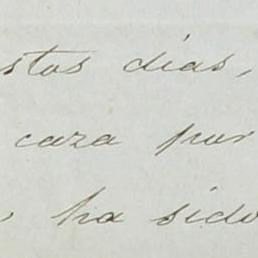 stos dias,
caza por
ha sido